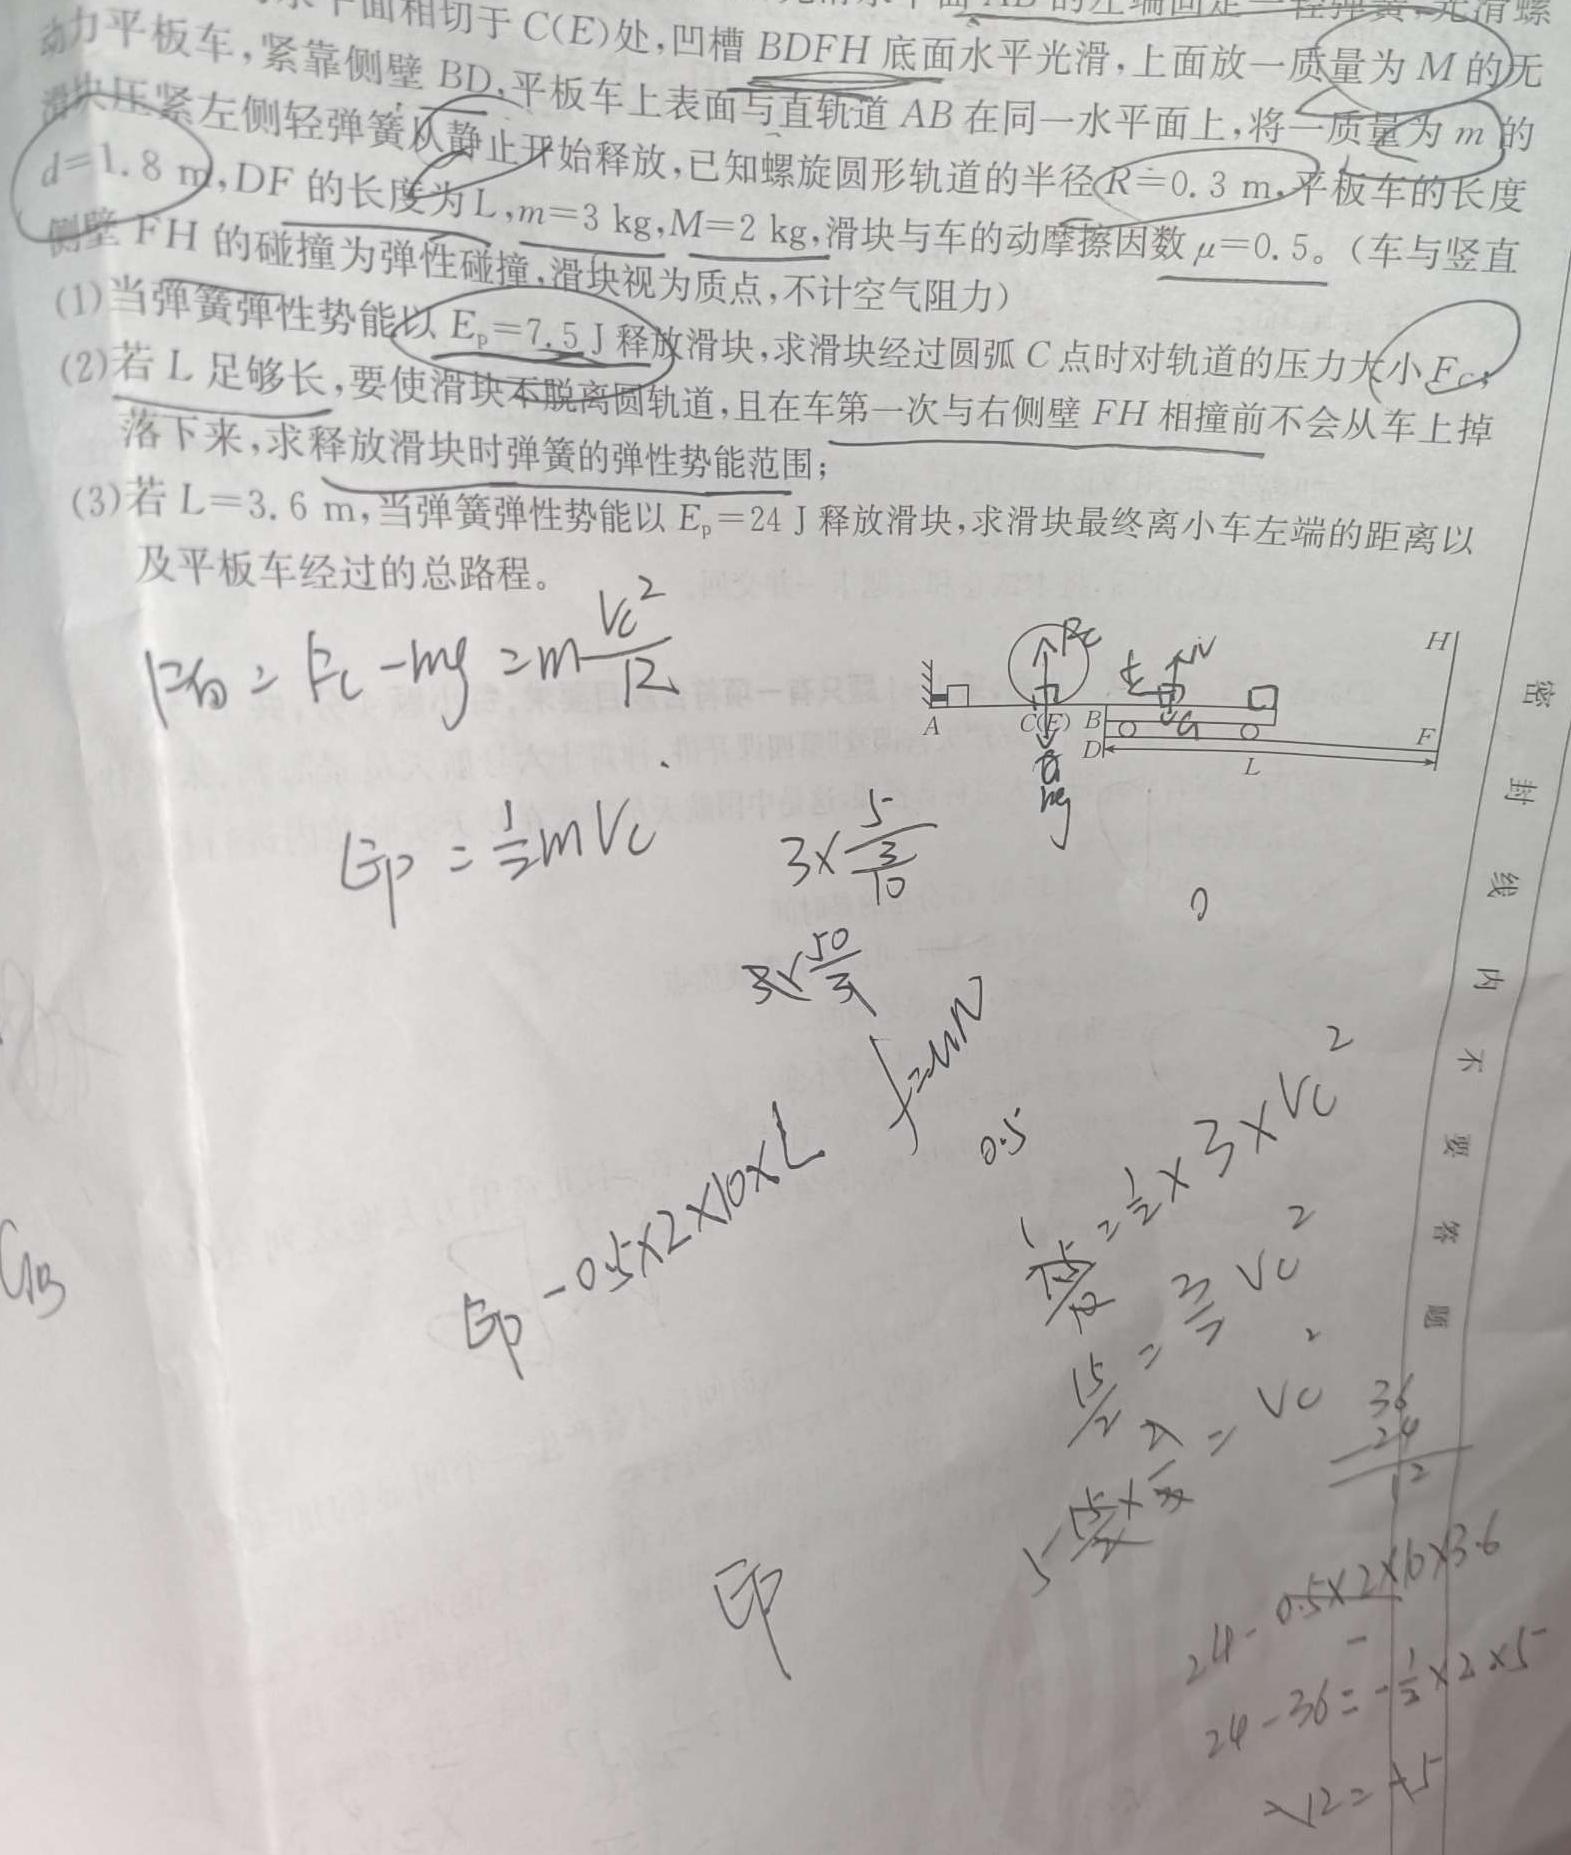 水平面相切于C(E)处,凹槽BDFH底面水平光滑,上面放一质量为M的无
动力平板车,紧靠侧壁BD,平板车上表面与直轨道AB在同一水平面上,将一质量为m的
滑块压紧左侧轻弹簧从静止开始释放,已知螺旋圆形轨道的半径R=0.3 m,平板车的长度
d=1.8 m,DF的长度为L,m=3 kg,M=2 kg,滑块与车的动摩擦因数μ=0.5。(车与竖直
侧壁FH的碰撞为弹性碰撞,滑块视为质点,不计空气阻力)
(1)当弹簧弹性势能以Eₚ=7.5 J释放滑块,求滑块经过圆弧C点时对轨道的压力大小F_C;
(2)若L足够长,要使滑块不脱离圆轨道,且在车第一次与右侧壁FH相撞前不会从车上掉
落下来,求释放滑块时弹簧的弹性势能范围;
(3)若L=3.6 m,当弹簧弹性势能以Eₚ=24 J释放滑块,求滑块最终离小车左端的距离以
及平板车经过的总路程。
F向=Fc-mg=m Vc²/R
Fc
N
H
A
C(E)
B
G
F
D
L
mg
Ep=1/2 mVc
3×5/(3/10)
3×50/3
f=μN
0.5
Ep-0.5×2×10×L
=1/2×3×Vc²
15/2=3/2 Vc²
=Vc²
5
Ep
36
24
12
24-0.5×2×10×3.6
24-36=-1/2×2×5
密
封
线
内
不
要
答
题